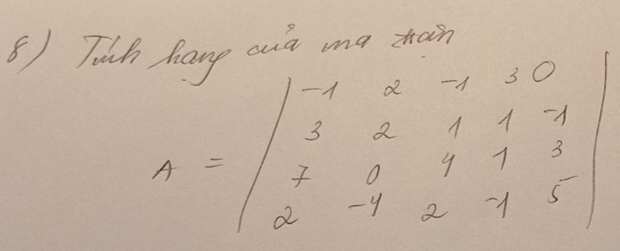 8) Tính hạng của ma trận
-1 2 -1 3 0
3 2 1 1 -1
A = 7 0 4 1 3
2 -4 2 -1 5